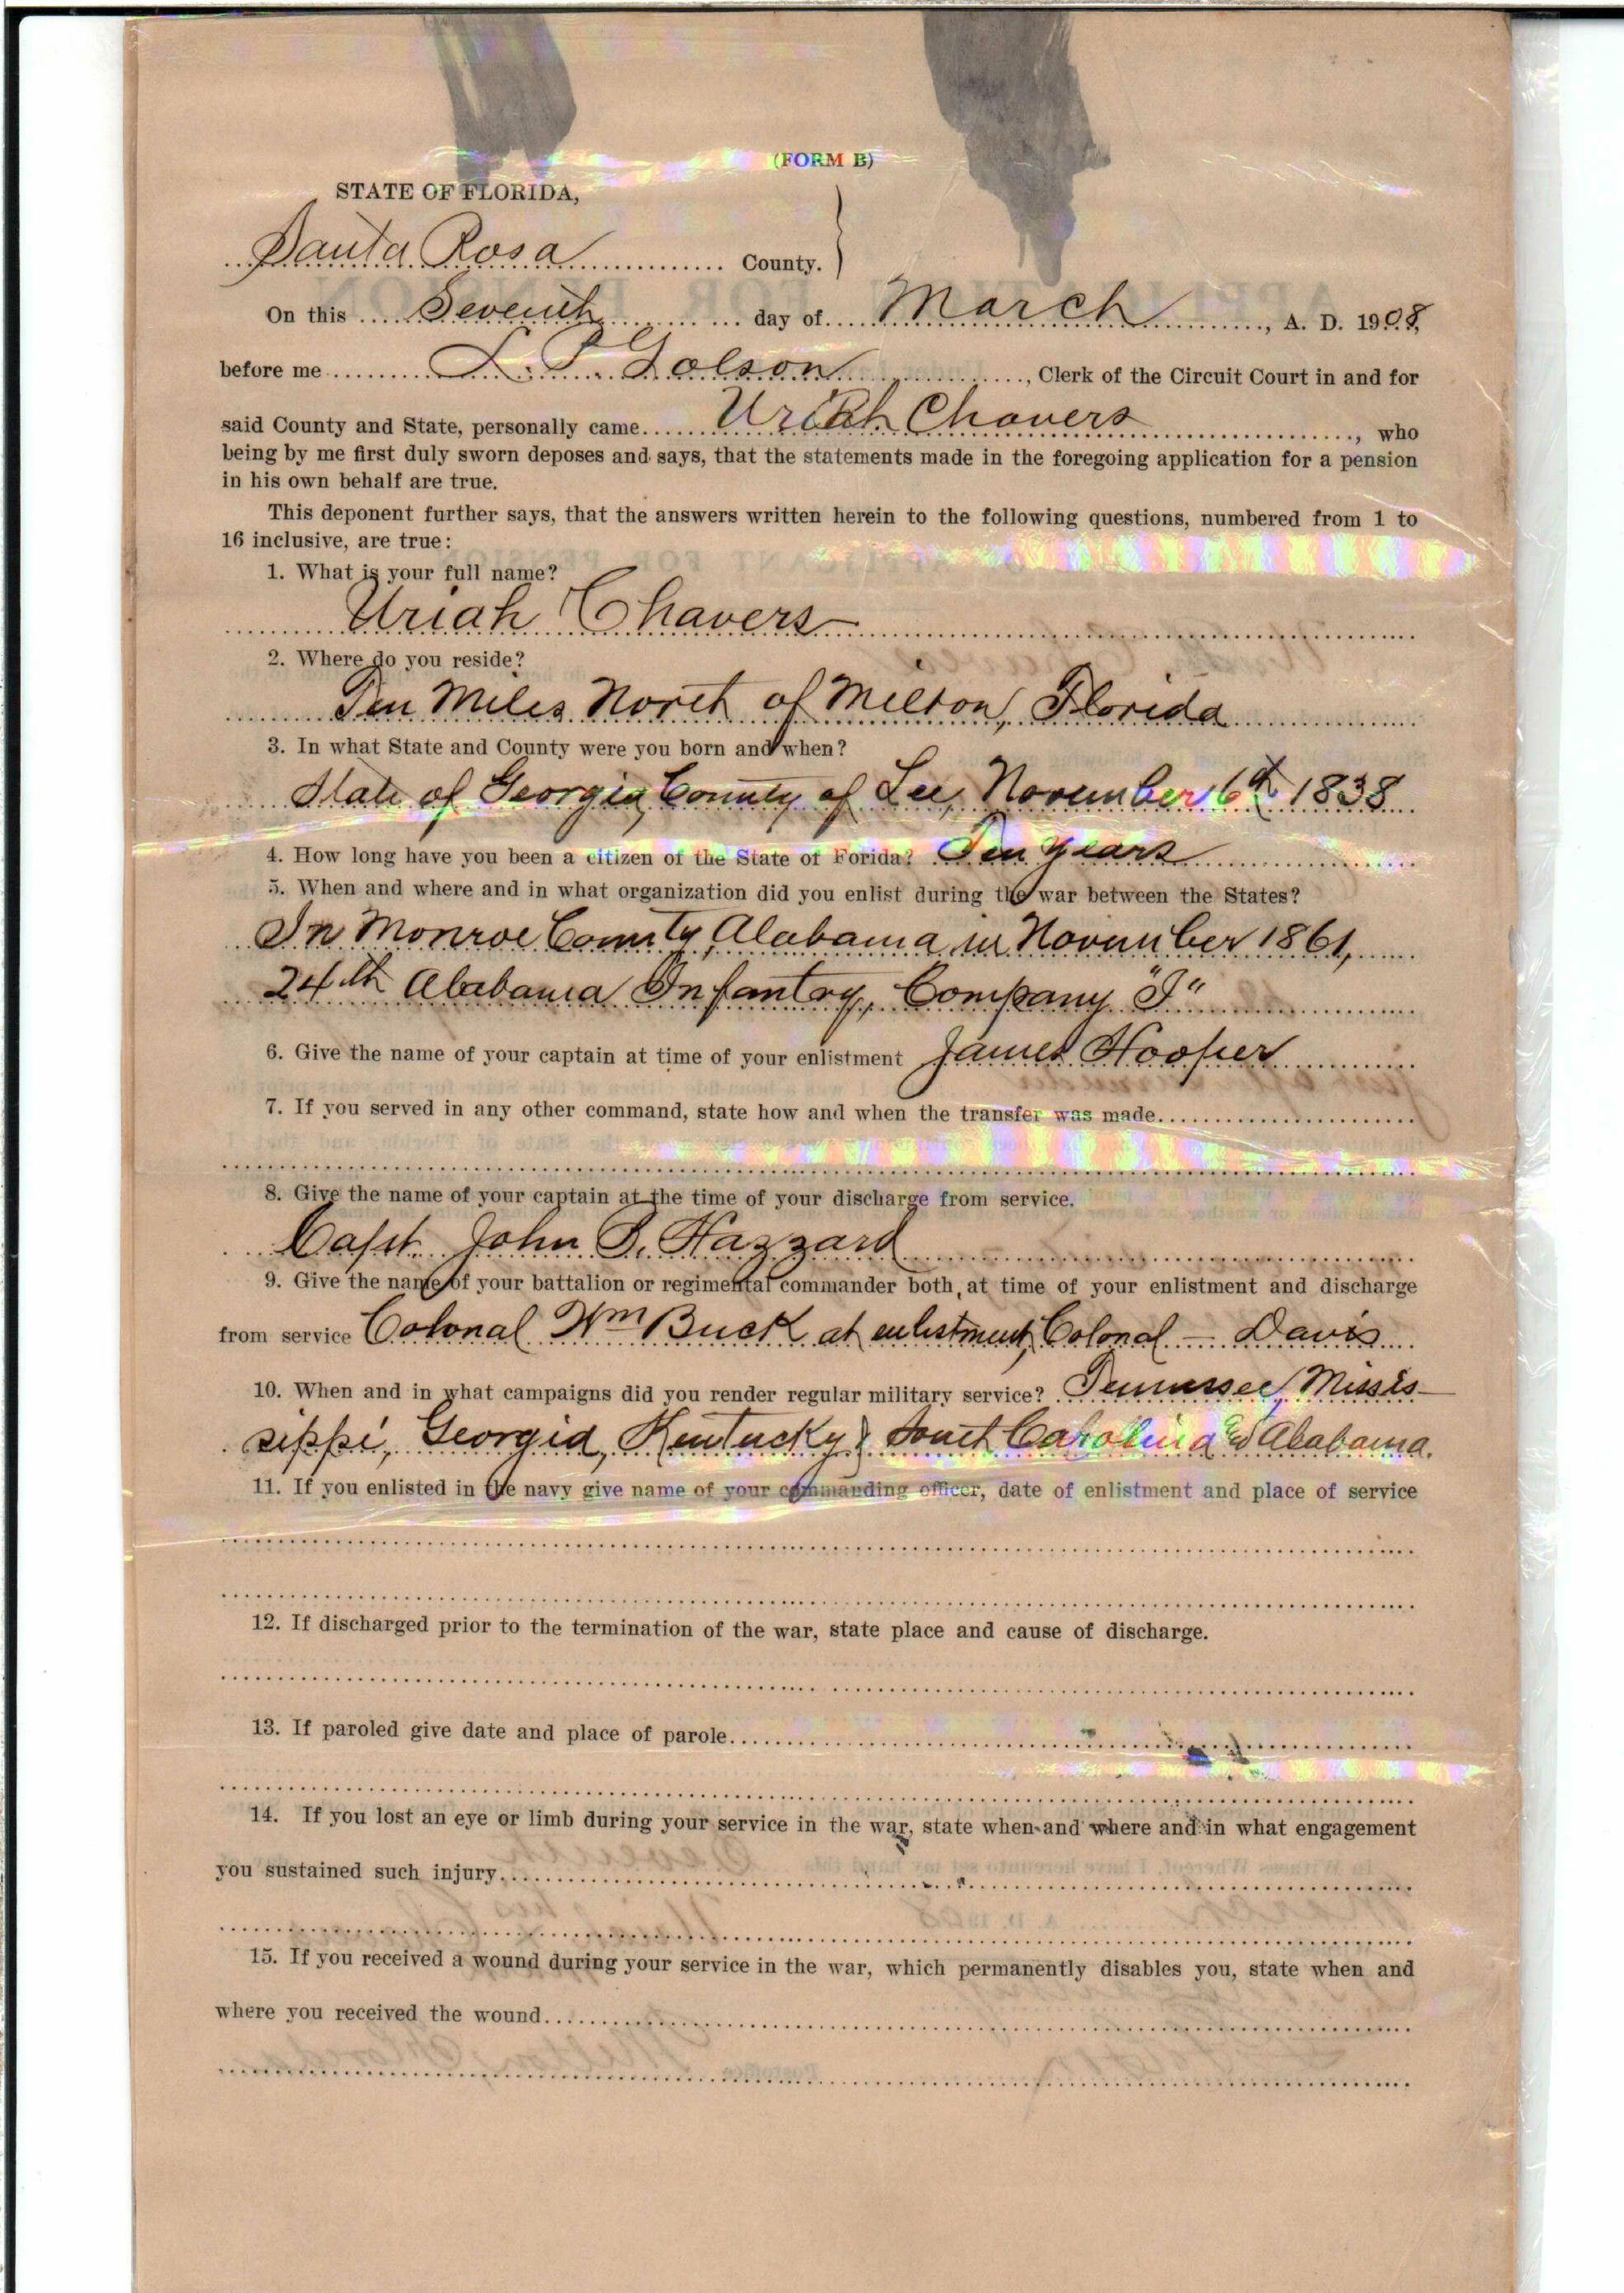 (FORM B)
STATE OF FLORIDA,
Santa Rosa County.
On this Seventh day of March, A. D. 1908,
before me L. P. Golson, Clerk of the Circuit Court in and for
said County and State, personally came Uriah Chavers, who
being by me first duly sworn deposes and says, that the statements made in the foregoing application for a pension
in his own behalf are true.
This deponent further says, that the answers written herein to the following questions, numbered from 1 to
16 inclusive, are true:
1. What is your full name?
Uriah Chavers
2. Where do you reside?
Ten Miles North of Milton, Florida
3. In what State and County were you born and when?
State of Georgia, County of Lee, November 6th 1838
4. How long have you been a citizen of the State of Forida? Ten years
5. When and where and in what organization did you enlist during the war between the States?
In Monroe County, Alabama in November 1861,
24th Alabama Infantry, Company "I"
6. Give the name of your captain at time of your enlistment James Hooper
7. If you served in any other command, state how and when the transfer was made
8. Give the name of your captain at the time of your discharge from service.
Capt. John B. Hazzard
9. Give the name of your battalion or regimental commander both, at time of your enlistment and discharge
from service Colonal Wm Buck at enlistment, Colonal — Davis
10. When and in what campaigns did you render regular military service? Tennessee, Missis-
sippi, Georgia, Kentucky, South Carolina & Alabama.
11. If you enlisted in the navy give name of your commanding officer, date of enlistment and place of service
12. If discharged prior to the termination of the war, state place and cause of discharge.
13. If paroled give date and place of parole
14. If you lost an eye or limb during your service in the war, state when and where and in what engagement
you sustained such injury
15. If you received a wound during your service in the war, which permanently disables you, state when and
where you received the wound